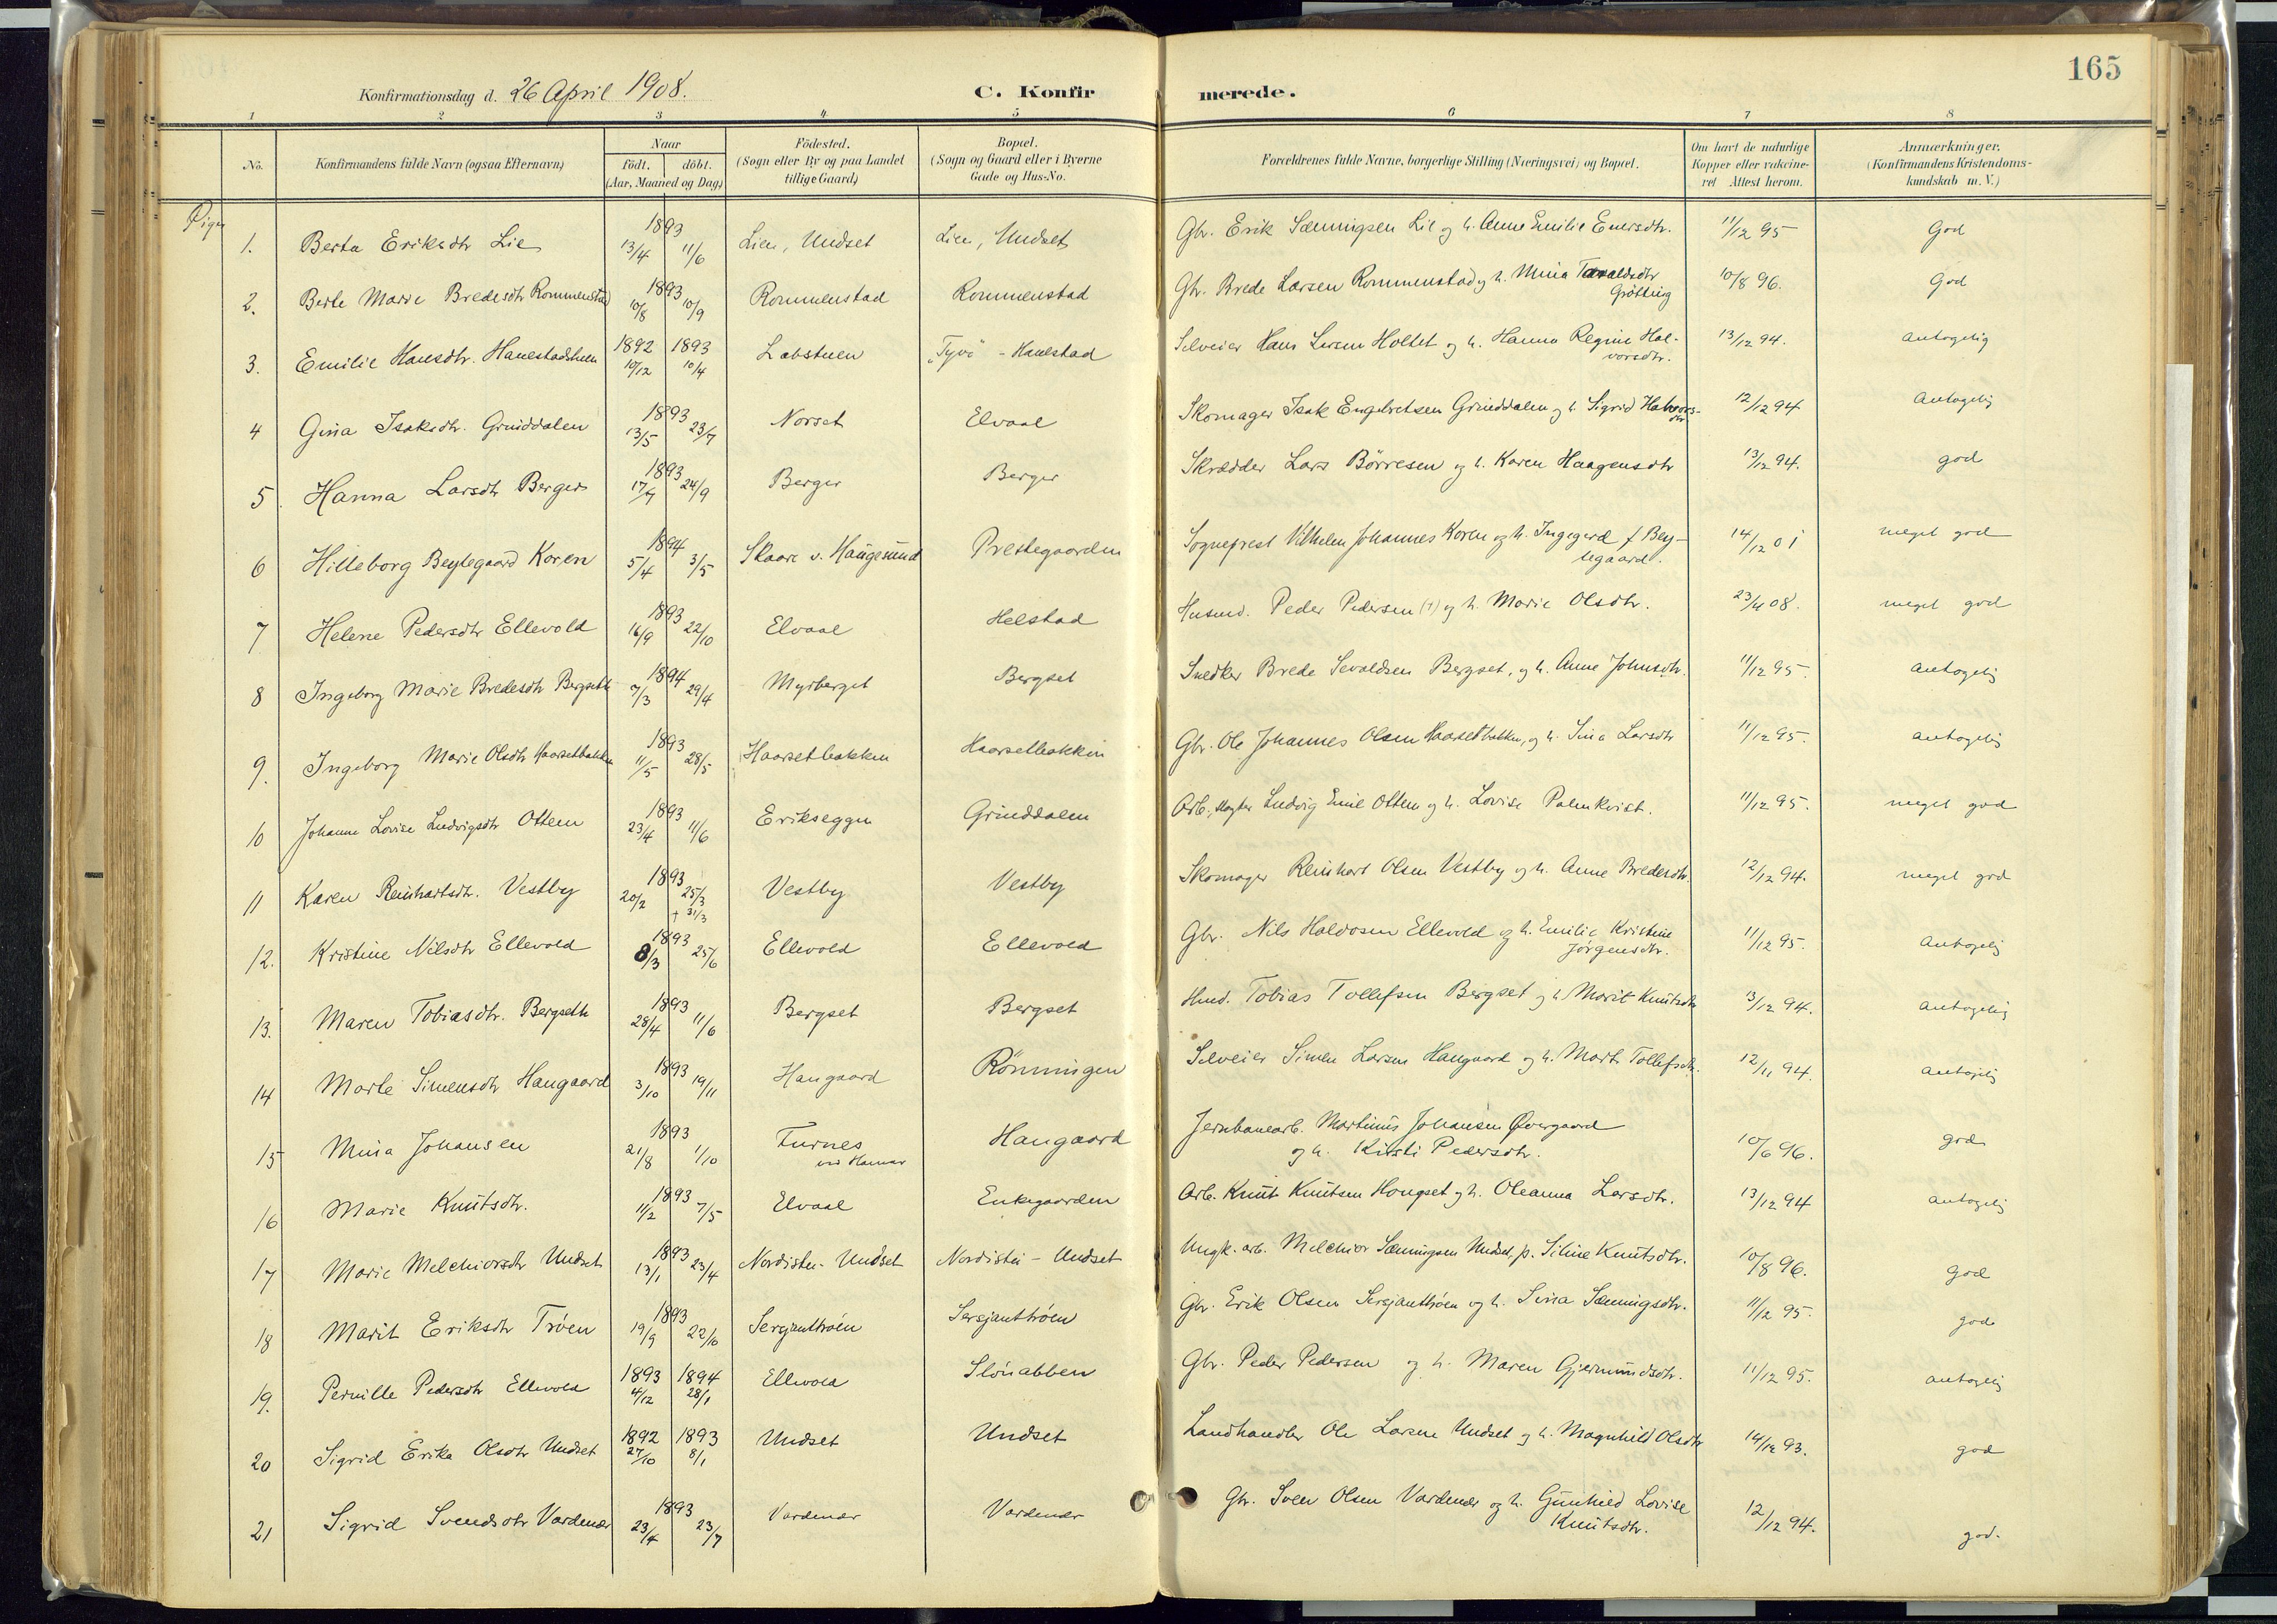 165
Konfirmationsdag d. 26 April 1908.
C. Konfirmerede.
1 2 3 4 5 6 7 8
No. Konfirmandens fulde Navn (ogsaa Efternavn) Naar født. døbt. (Aar, Maaned og Dag) Födested. (Sogn eller By og paa Landet tillige Gaard) Bopæl. (Sogn og Gaard eller i Byerne Gade og Hus-No. Forældrenes fulde Navne, borgerlige Stilling (Næringsvei) og Bopæl. Om havt de naturlige Kopper eller vakcineret Attest herom. Anmærkninger. (Konfirmandens Kristendomskundskab m. V.)
Piger
1. Berta Eriksdtr Lie 1893 13/4 11/6 Lien, Undset Lien, Undset Gbr. Erik Sæmingsen Lie og h. Anne Emilie Enersdtr. 11/12 95 God
2. Berte Marie Bredesdtr Rommenstad 1893 10/8 10/9 Rommenstad Rommenstad Gbr. Brede Larsen Rommenstad og h. Mina Taraldsdtr Grötting 10/8 96. God
3. Emilie Hansdtr. Hanestadhalen 1892 10/12 1893 10/4 Labstuen "Tyvö" - Hanestad Selveier Hans Larsen Holtet og h. Hanna Regine Halvorsdtr. 13/12 94. antagelig
4 Gina Isaksdtr. Grinddalen 1893 13/5 23/7 Norset Elvaal Skomager Isak Engebretsen Grinddalen og h. Sigrid Halvorsdtr. 12/12 94 Antagelig
5. Hanna Larsdtr Berger 1893 17/7 24/9 Berger Berger Skrædder Lars Börresen og h. Karen Haagensdtr 13/12 94. god
6 Hilleborg Beylegaard Koren 1894 5/4 3/5 Skaare v. Haugesund Prestegaarden Sogneprest Vilhelm Johannes Koren og h. Ingegerd f Beylegaard. 14/12 01 meget god
7 Helene Pedersdtr Ellevold 1893 16/9 22/10 Elvaal Helstad Husmd. Peder Pedersen (†) og h. Marie Olsdtr. 23/4 08. meget god
8 Ingeborg Marie Bredesdtr Bergseth 1894 7/3 29/4 Myrberget Bergset Snedker Brede Sevaldsen Bergset, og h. Anne Johnsdtr. 11/12 95 antagelig
9. Ingeborg Marie Olsdtr Haarsetbakken 1893 11/5 28/5 Haarsetbakken Haarsetbakken Gbr. Ole Johannes Olsen Haarsetbakken, og h. Sina Larsdtr 11/12 95. antagelig
10 Johanne Lovise Ludvigsdtr Ottem 1893 23/4 11/6 Erikseggen Grinddalen Arb., Ludvig Emil Ottem og h. Lovise Palmkvist. 11/12 95. meget god
11 Karen Reinhartsdtr. Vestby 1893 20/2 25/3 † 31/3 Vestby Vestby Skomager Reinhart Olsen Vestby og h. Anne Bredesdtr. 12/12 94. meget god
12. Kristine Nilsdtr Ellevold 1893 8/3 25/6 Ellevold Ellevold Gbr. Nils Haldosen Ellevold og h. Emilie Kristine Jörgensdtr. 11/12 95. Antagelig
13. Maren Tobiasdtr. Bergseth 1893 28/4 11/6 Bergset Bergset Husmd. Tobias Tollefsen Bergset og h. Marit Knutsdtr 13/12 94. antagelig
14 Marte Simensdtr Haugaard 1893 3/10 19/11 Haugaard Rönningen Selveier Simen Larsen Haugaard og h. Marte Tollefsdtr. 12/11 94. antagelig
15 Mina Johansen 1893 21/8 1/10 Furnes ved Hamar Haugaard Jernbanearb. Martinus Johansen Övergaard og h. Kirsti Pedersdtr. 10/6 96. god
16 Marie Knutsdtr. 1893 11/2 7/5 Elvaal Enkegaarden Arb. Knut Knutsen Hougset og h. Oleanna Larsdtr. 13/12 94 antagelig
17 Marie Melchiorsdtr Undset 1893 13/1 23/4 Nordistu - Undset Nordistu - Undset Ungk. arb. Melchior Sæmingsen Undset, p. Siline Knutsdtr. 10/8 96. god
18 Marit Eriksdtr Tröen 1893 19/9 22/10 Sersjanttröen Sersjanttröen Gbr. Erik Olsen Sersjanttröen og h. Sina Sæmingsdtr. 11/12 95. god
19. Pernille Pedersdtr Ellevold 1893 4/12 1894 28/1 Ellevold Slönabben Gbr. Peder Pedersen og h. Maren Gjermundsdtr. 11/12 95. antagelig
20 Sigrid Erika Olsdtr Undset 1892 27/10 1893 8/1 Undset Undset Landhandler Ole Larsen Undset og h. Magnhild Olsdtr 14/12 93. god
21 Sigrid Svendsdtr Vardenær 1893 23/4 23/7 Vardenær Vardenær Gbr. Sven Olsen Vardenær og h. Gunhild Lovise Knutsdtr. 12/12 94. god.